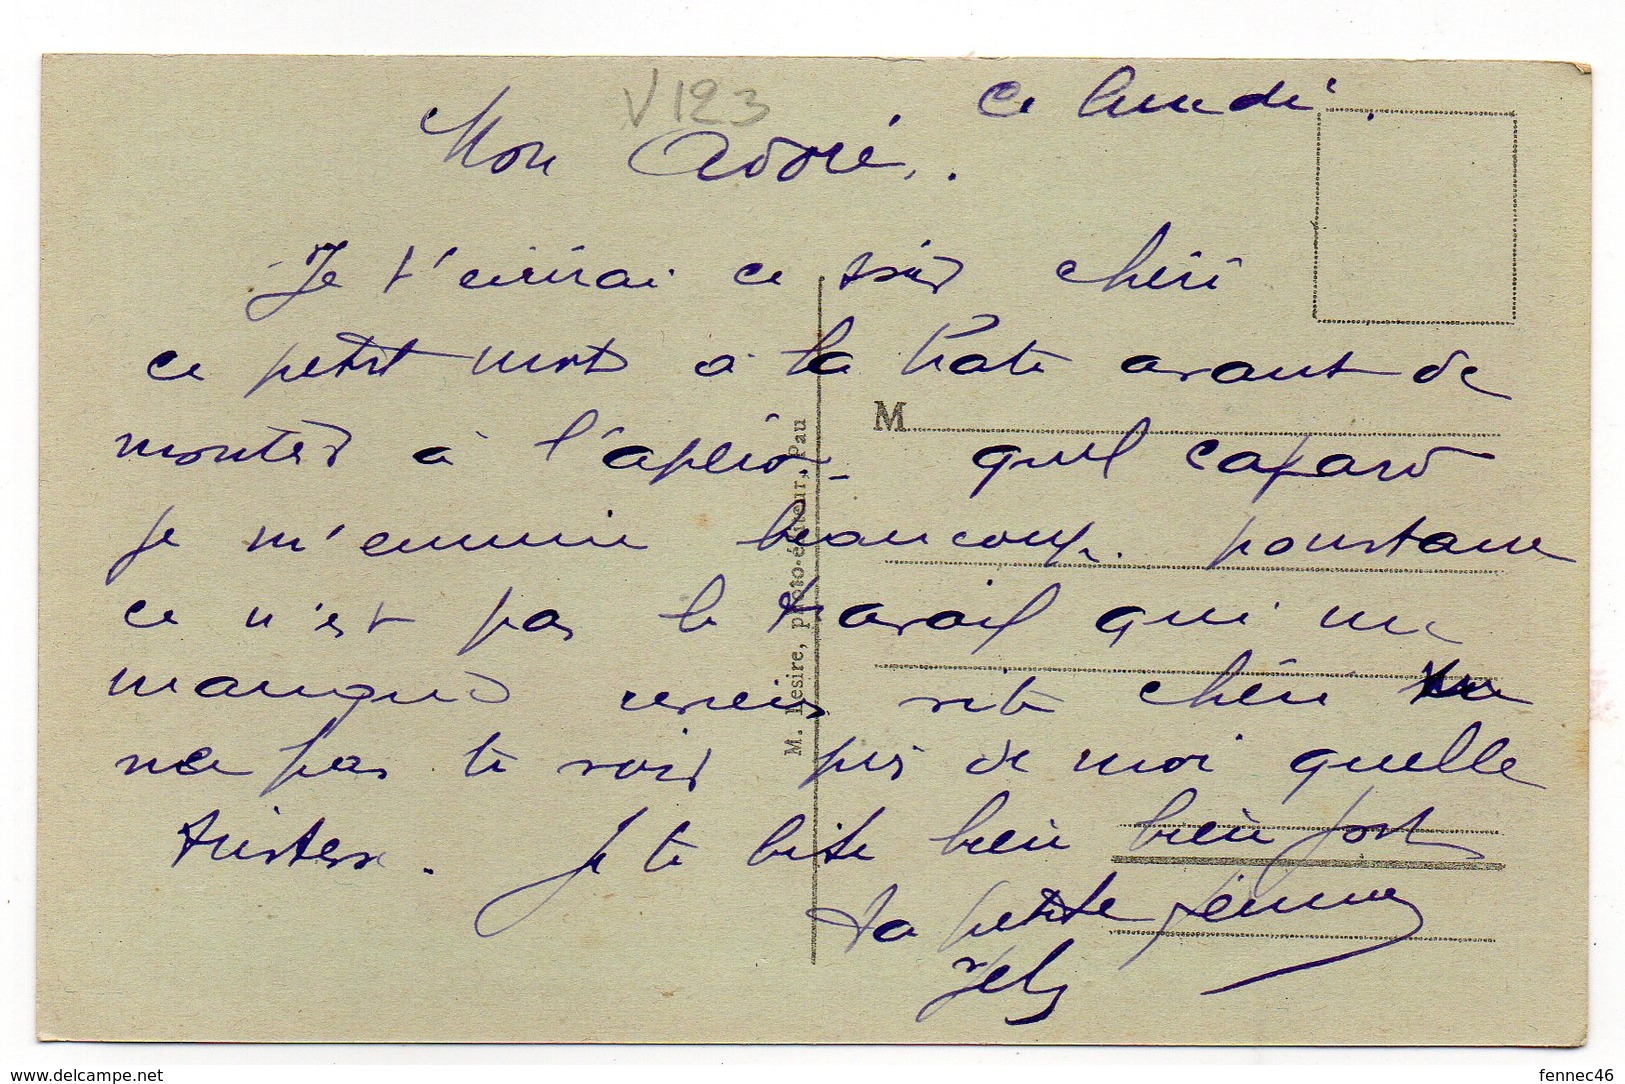 V123
Ce lundi.
Mon Adoré..
Je t'écrirai ce soir chéri
ce petit mot à la hate avant de
monter à l'apéro - quel cafard
je m'ennuie beaucoup. pourtant
ce n'est pas le travail qui me
manque reviens vite chéri
ne pas te voir pres de moi quelle
tristesse. Je te bise bien bien fort
ta petite femme
M
M. Desire, photo-éditeur, Pau
delcampe.net
fennec46